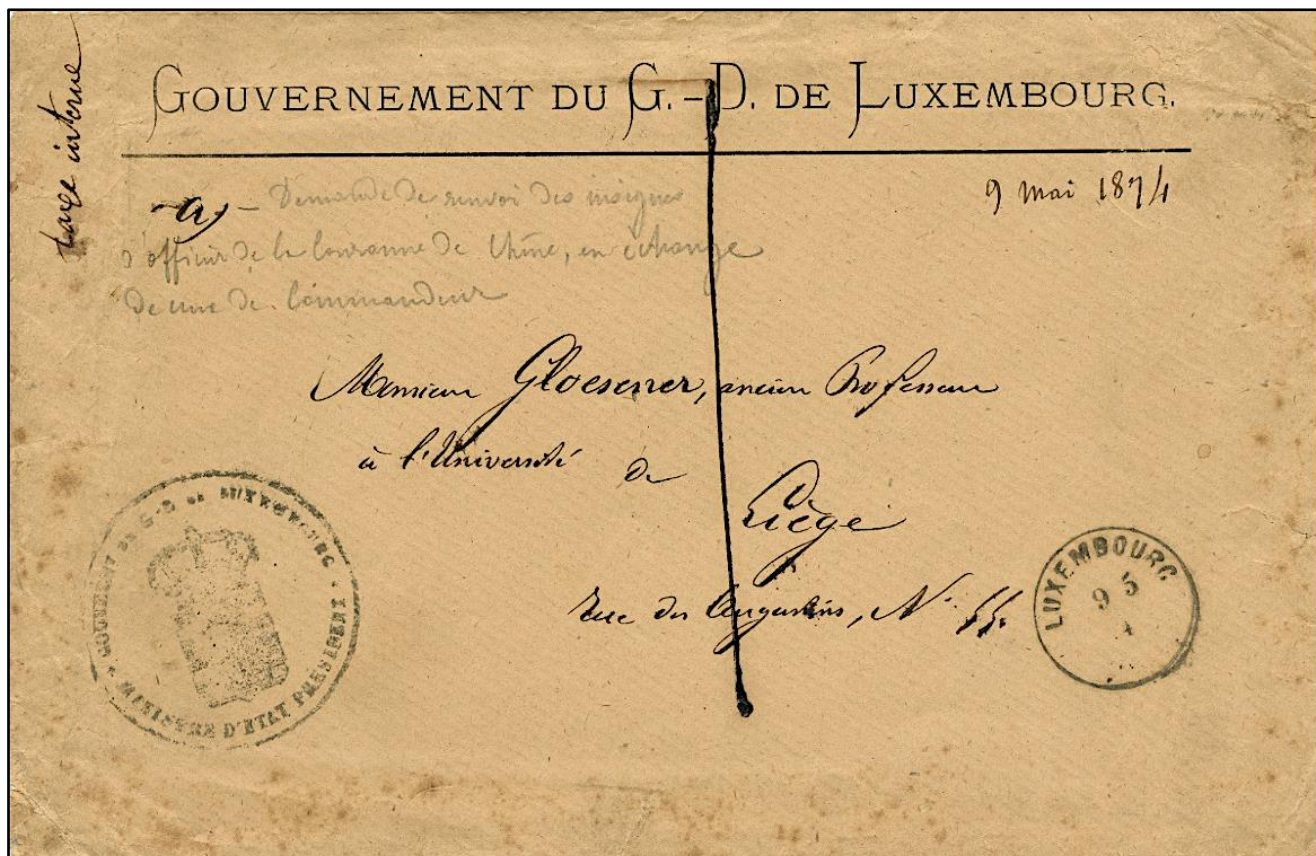 taxe interne
GOUVERNEMENT DU G.-D. DE LUXEMBOURG.
9 mai 1874
a) - Demande de renvoi des insignes
d'officier de la Couronne de Chêne, en échange
de ceux de Commandeur
Monsieur Gloesener, ancien Professeur
à l'Université de
Liège
rue des Augustins, N°
GOUVERNEMT DU G-D DE LUXEMBOURG
MINISTRE D'ETAT PRESIDENT
LUXEMBOURG
9 5